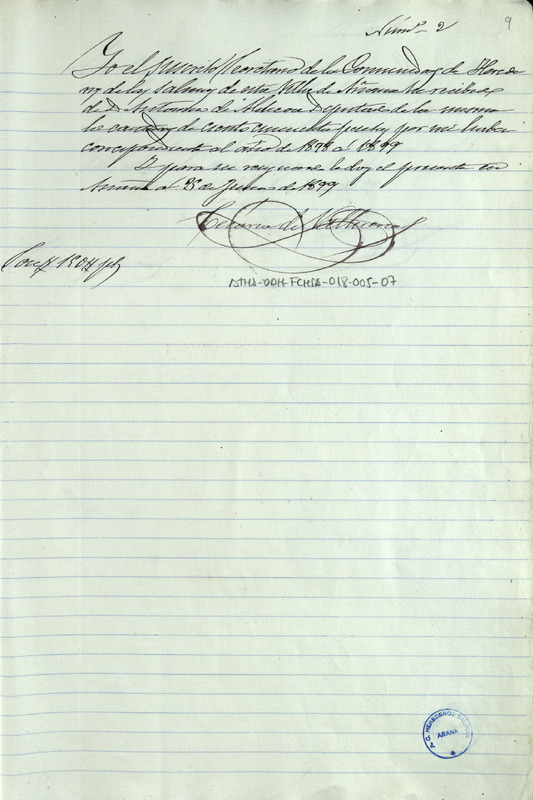 Núm.º 2
9
Yo el suscrito Secretario de la Comunidad de Herede
ros de las Salinas de esta Villa de Añana he recibido
de D. de Diputado de la misma
la cantidad de ciento cincuenta pesetas por mi
correspondiente al año de 1898 a 1899
Y para su resguardo le doy el presente en
Añana a 25 de de 1899
Son 150
ATHA-DDH-FCHSA-018-005-07
ARANA